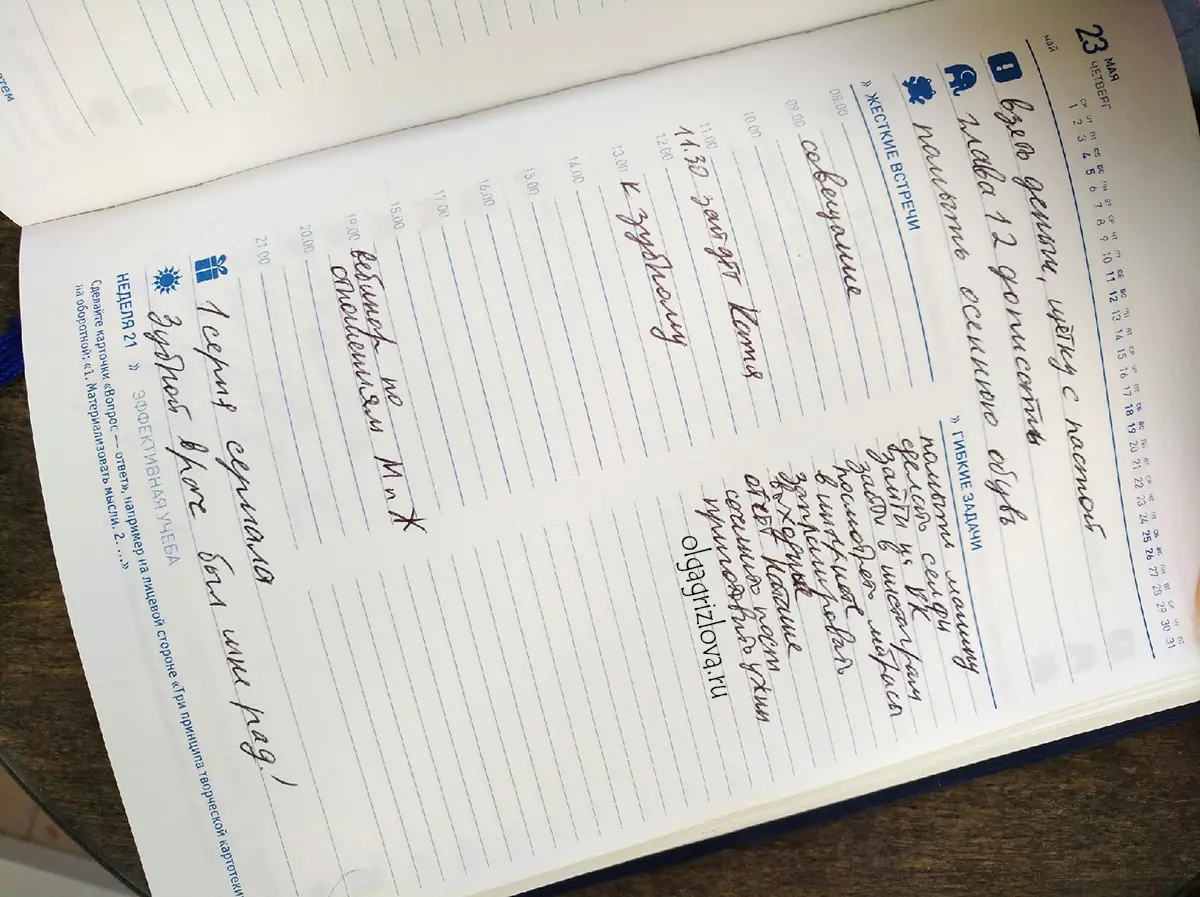 23 МАЯ
ЧЕТВЕРГ
май
СР ЧТ ПТ СБ ВС ПН ВТ СР ЧТ ПТ СБ ВС ПН ВТ СР ЧТ ПТ СБ ВС ПН ВТ СР ЧТ ПТ СБ ВС ПН ВТ СР ЧТ ПТ
1 2 3 4 5 6 7 8 9 10 11 12 13 14 15 16 17 18 19 20 21 22 23 24 25 26 27 28 29 30 31
взять деньги, щётку с пастой
глава 12 дописать
помыть осеннюю обувь
» ЖЕСТКИЕ ВСТРЕЧИ
08.00
09.00 совещание
10.00
11.00
11.30 зайдёт Катя
12.00
13.00 к зубному
14.00
15.00
16.00
17.00
18.00
19.00 вебинар по
отношениям М и Ж
20.00
21.00
» ГИБКИЕ ЗАДАЧИ
помыть машину
сделать селфи
зайти в ВК
зайти в инстаграм
посмотреть матрасы
в интернете
запланировать
выходные
ответ Наташе
сочинить пост
приготовить ужин
olgagrizlova.ru
1 серия сериала
Зубной врач был мне рад!
НЕДЕЛЯ 21 » ЭФФЕКТИВНАЯ УЧЕБА
Сделайте карточки «Вопрос — ответ», например на лицевой стороне «Три принципа творческой картотеки
на оборотной: «1. Материализовать мысли. 2. ...»